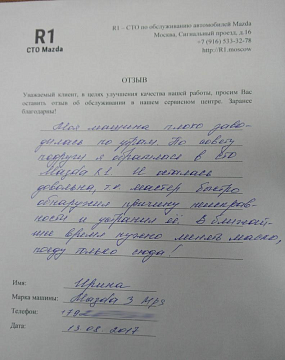 R1
СТО Mazda
R1 – СТО по обслуживанию автомобилей Mazda
Москва, Сигнальный проезд, д.16
+7 (916) 533-32-78
http://R1.moscow
ОТЗЫВ
Уважаемый клиент, в целях улучшения качества нашей работы, просим Вас
оставить отзыв об обслуживании в нашем сервисном центре. Заранее
благодарны!
Моя машина плохо заво-
дилась по утрам. По совету
подруги я обратилась в СТО
Мазда R1. И осталась
довольна, т.к. мастер быстро
обнаружил причину неисправ-
ности и устранил её. В ближай-
шее время нужно менять масло,
поеду только сюда!
Имя: Ирина
Марка машины: Mazda 3 MPS
Телефон: +79
Дата: 13.08.2017